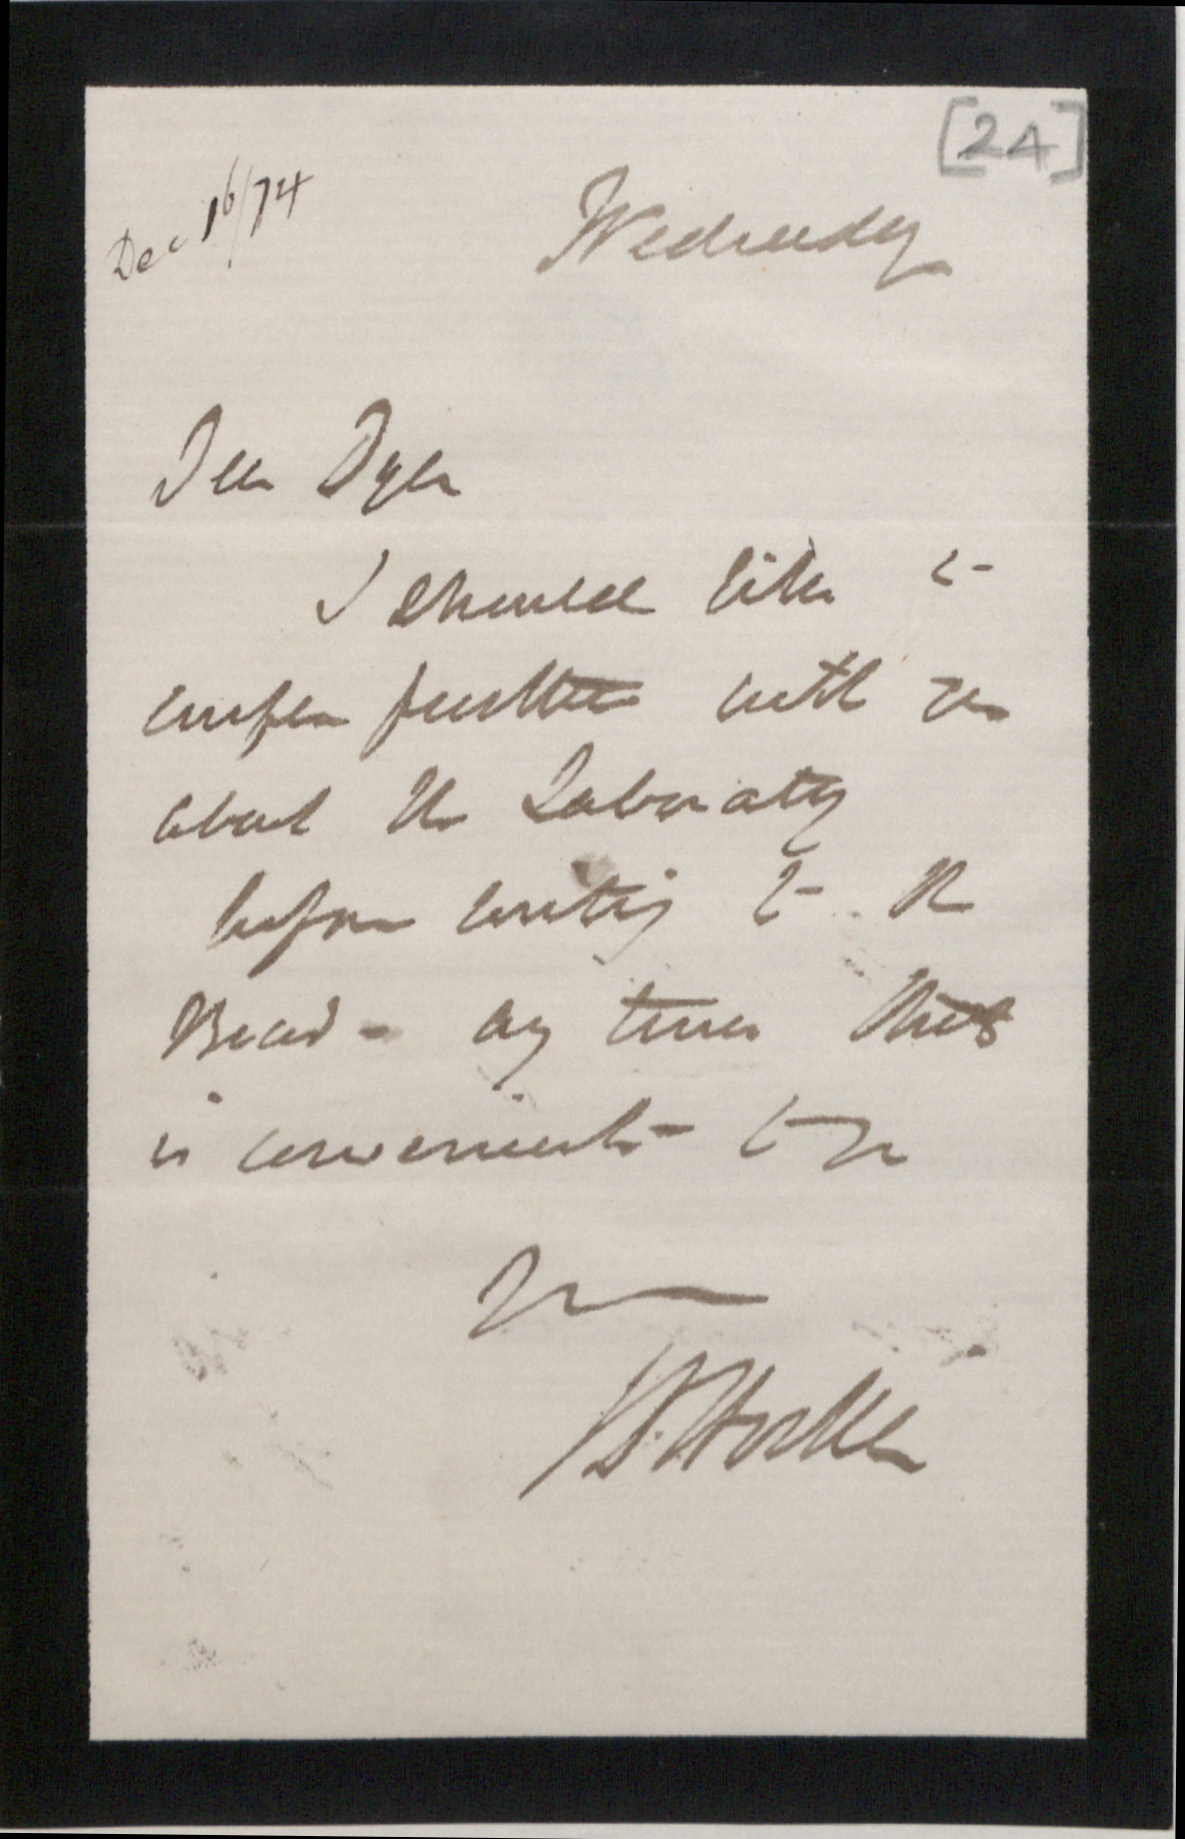 [24]
Dec 16/74
Wednesday
Dear Dyer
I should like to
confer further with you
about the Laboratory
before writing to the
Board - any time that
is convenient to you
Yrs
J D Hooker